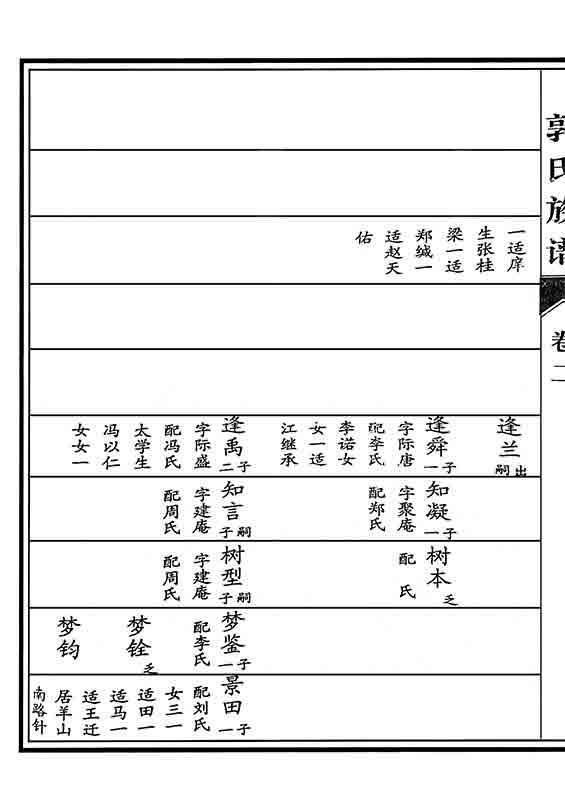 郭氏族谱
卷二
一适庠
生张桂
梁一适
郑缄一
适赵天
佑
逢兰出嗣
逢舜子一
字际唐
配李氏
李诺女
女一适
江继承
逢禹子二
字际盛
配冯氏
太学生
冯以仁
女女一
知凝子一
字聚庵
配郑氏
知言嗣子
字建庵
配周氏
树本乏
配 氏
树型嗣子
字建庵
配周氏
梦鉴子一
配李氏
梦铨乏
梦钧
景田子一
配刘氏
女三一
适田一
适马一
适王迁
居羊山
南路针